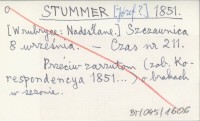 STUMMER [Józef?] 1851.
[W rubryce: Nadesłane.] Szczawnica
8 września. - Czas nr 211.
Przeciw zarzutom (zob. Ko-
respondencya 1851...) o brakach
w sezonie.
BJ/045/1606